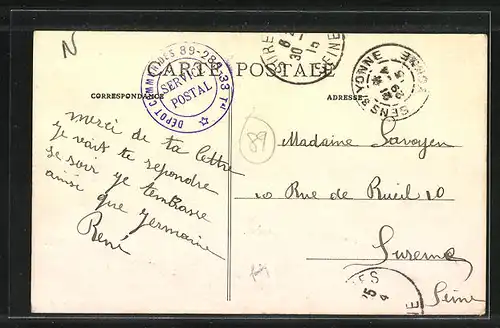 N
CARTE POSTALE
CORRESPONDANCE
ADRESSE
DEPOT COMMUN DES 89-289-33 Tal
SERVICE
POSTAL
SENS S YONNE
merci de ta lettre
je vait te repondre
se soir je tembrasse
ainsi que germaine
René
89
Madame Savoyen
10 Rue de Rueil 10
Suresnes
Seine